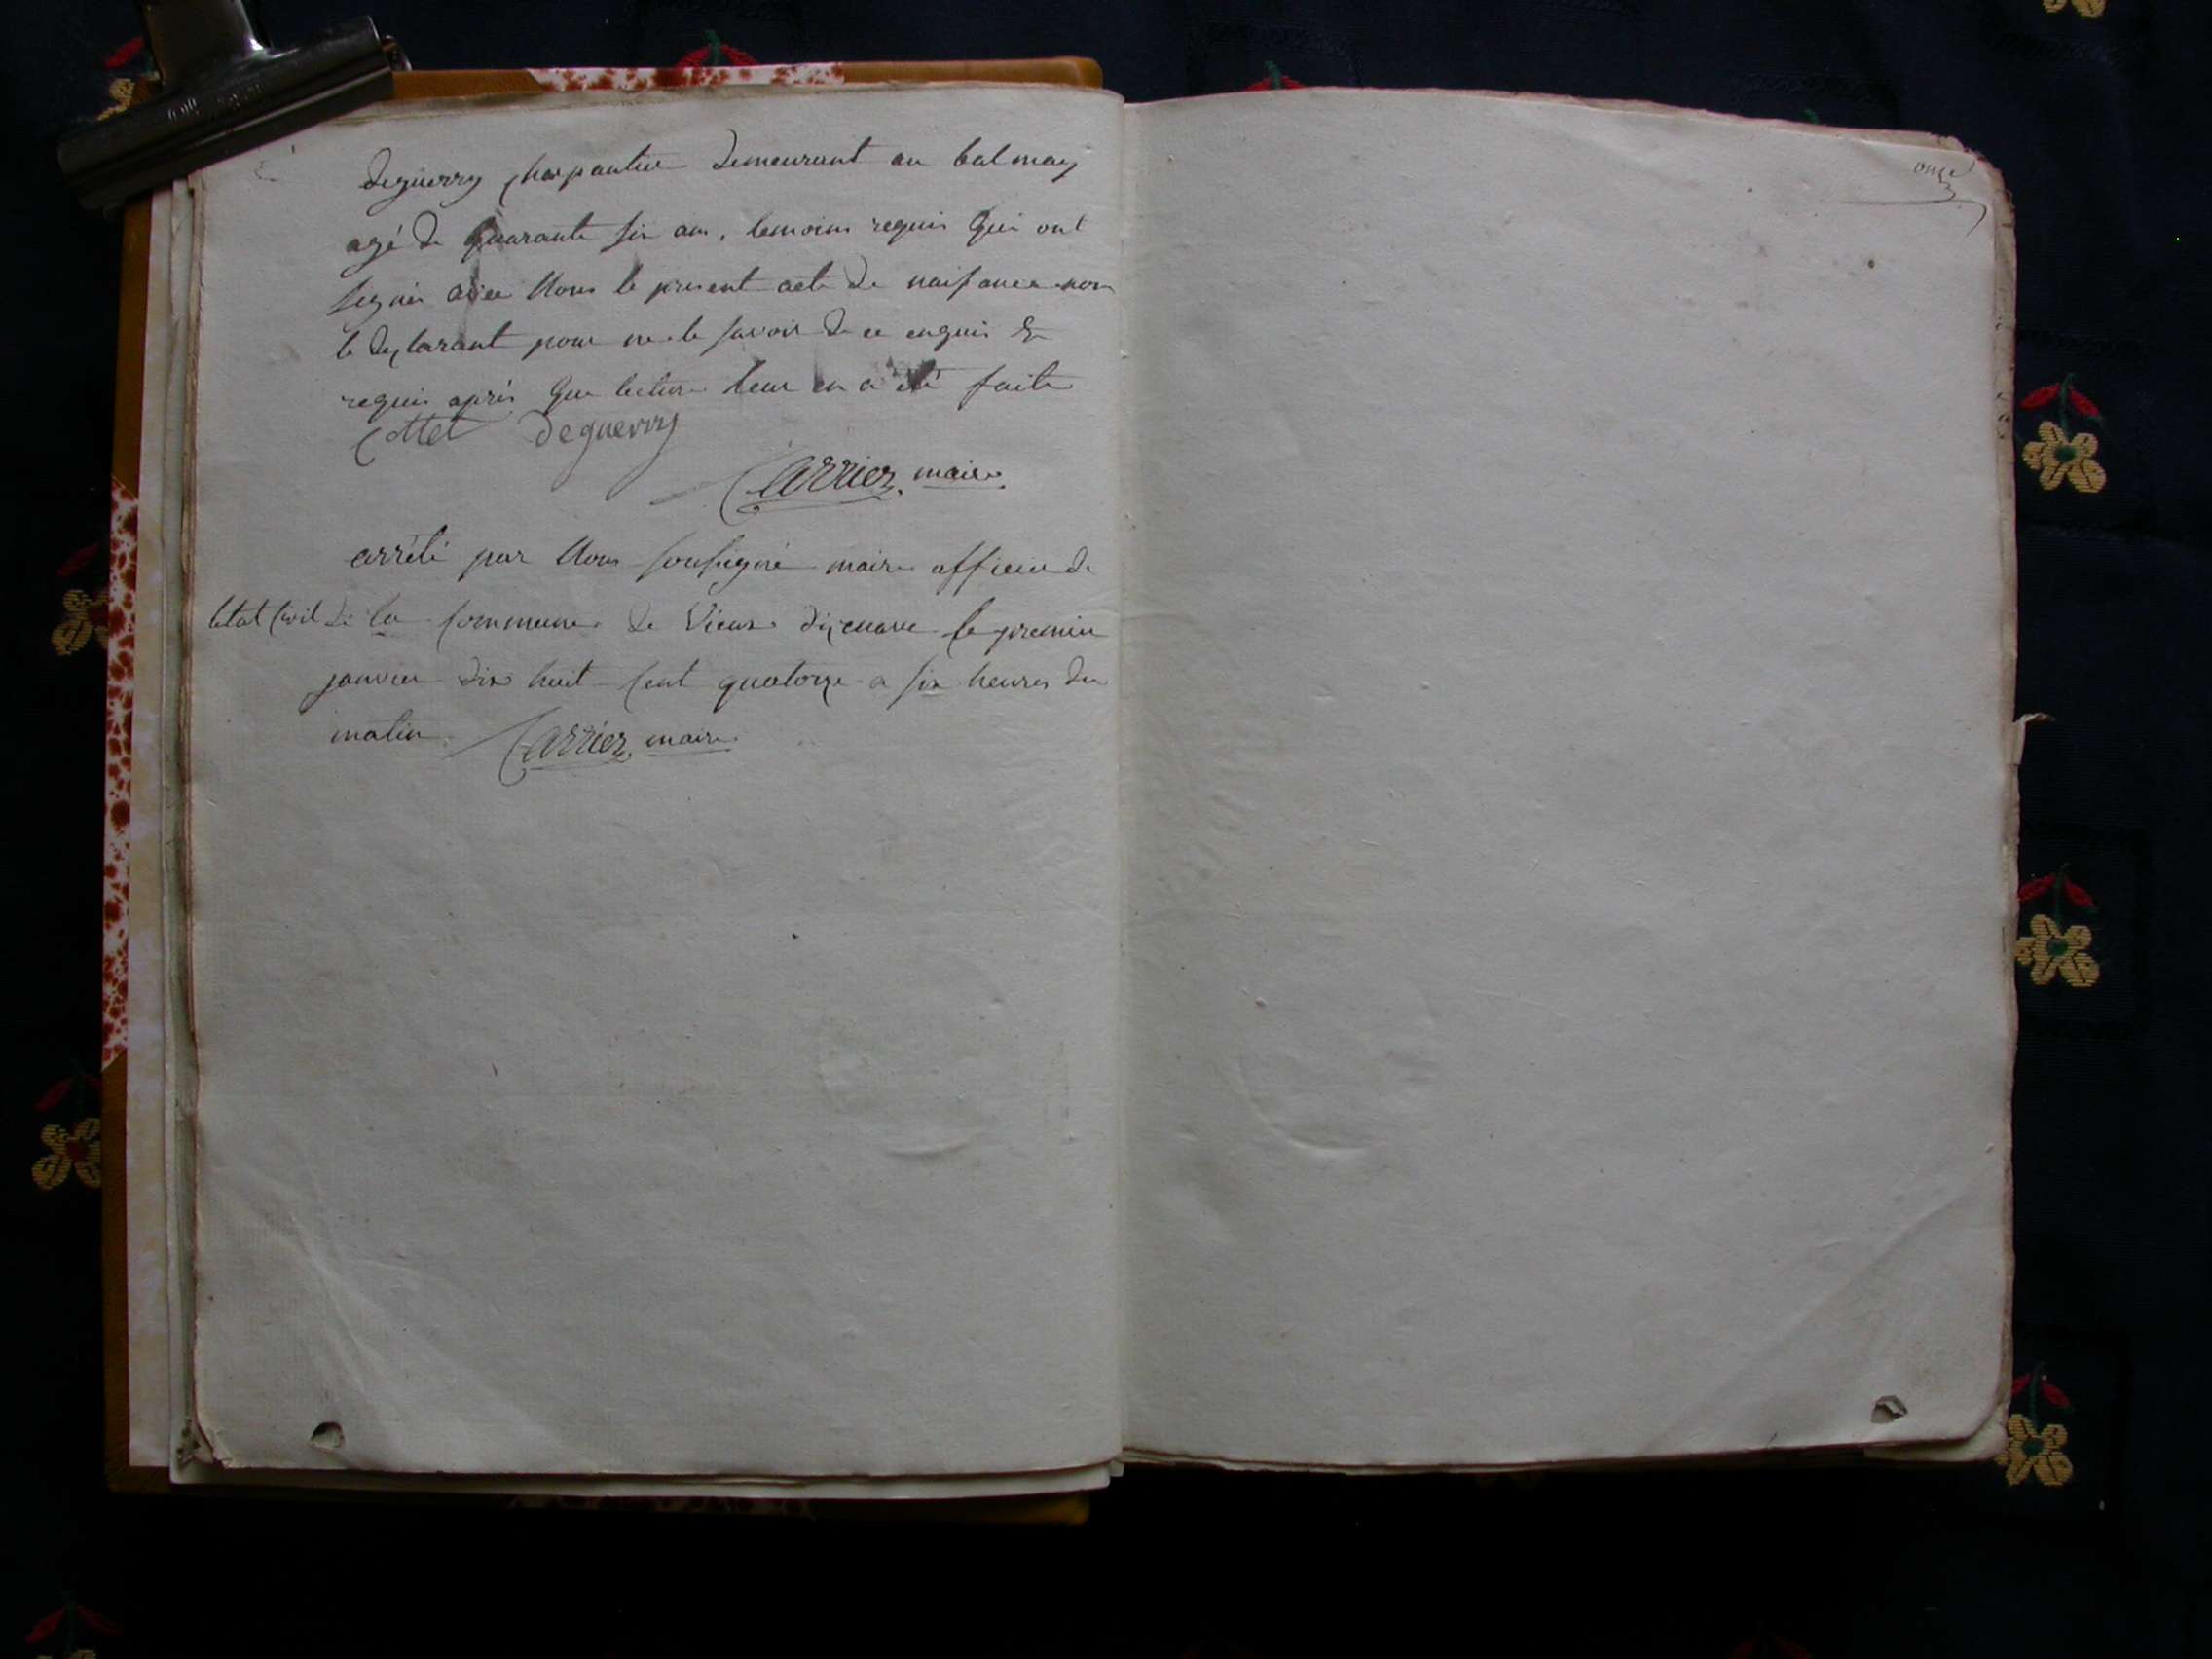 deguerry charpantier demeurant au balmay
agé de quarante six ans, temoins requis qui ont
signés avec Nous le present acte de naissance non
le declarant pour ne le savoir de ce enquis &
requis après que lecture leur en a été faite
Cottet deguerry
Carrier, maire.
arrêté par Nous soussigné maire officier de
letat civil de la commune de Vieux dizenave le premier
janvier dix huit cent quatorze a six heures du
matin Carrier, maire.
onze